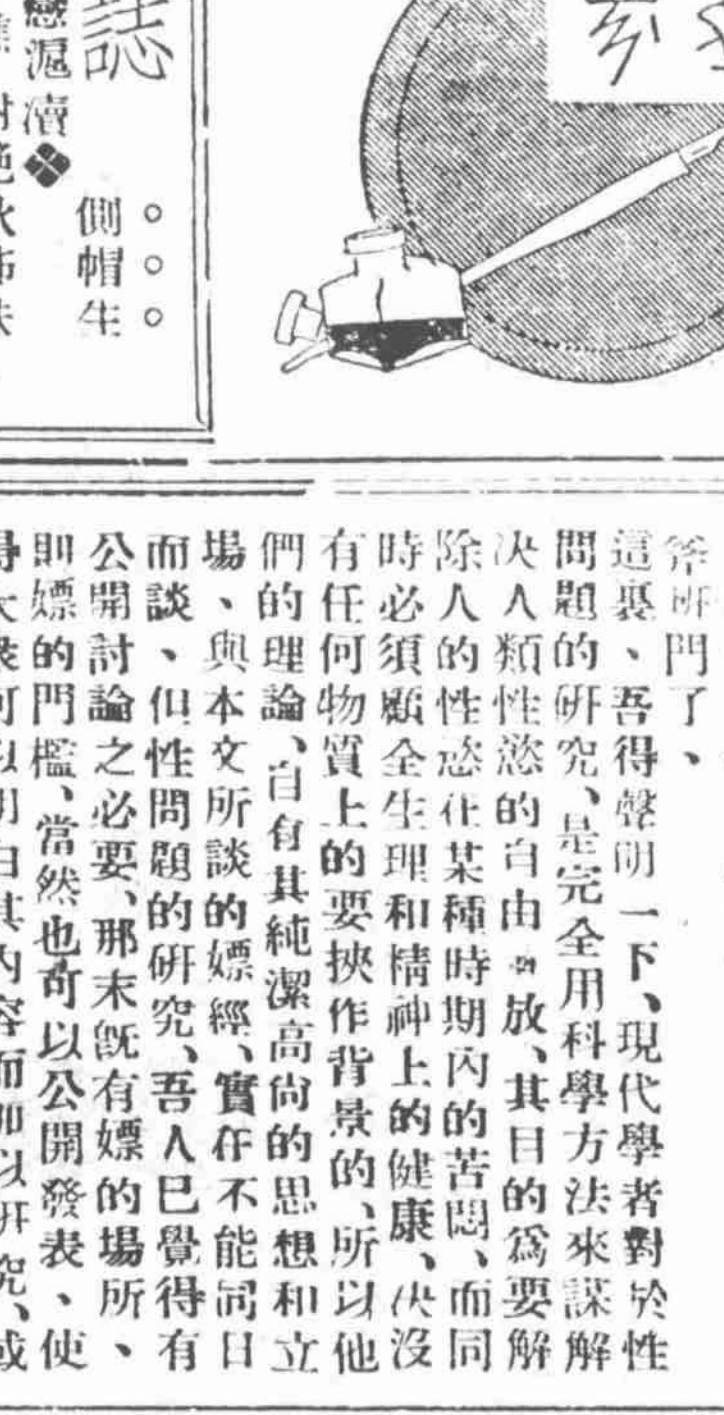 門了、
這裏、吾得聲明一下、現代學者對於性
問題的研究、是完全用科學方法來謀解
決人類性慾的自由放、其目的爲要解
除人的性慾在某種時期內的苦悶、而同
時必須顧全生理和精神上的健康、決沒
有任何物質上的要挾作背景的、所以他
們的理論、自有其純潔高尚的思想和立
場、與本文所談的嫖經、實在不能同日
而談、但性問題的研究、吾人已覺得有
公開討論之必要、那末旣有嫖的場所、
則嫖的門檻、當然也可以公開發表、使
得大衆可以明白其內容而加以研究、或
誌
滬瀆❖
側帽生